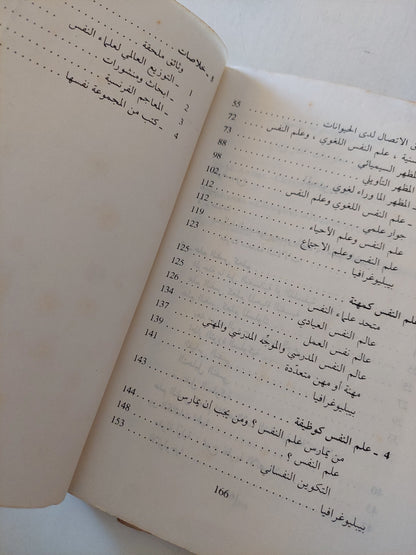 55 . . . . ق الاتصال لدى الحيوانات
72 . . . . سنية ، علم النفس اللغوي ، وعلم النفس
73 . . . . المظهر السيميائي
88 . . . . المظهر التأويلي
98 . . . . المظهر الما وراء لغوي
102 . . . . علم النفس اللغوي وعلم النفس
112 . . . . جوار علمي
112 . . . . علم النفس وعلم الأحياء
119 . . . . علم النفس وعلم الاجتماع
123 . . . . بيبليوغرافيا
علم النفس كمهنة . . . . 125
متحد علماء النفس . . . . 125
عالم النفس العيادي . . . . 126
عالم نفس العمل . . . . 134
عالم النفس المدرسي والموجّه المدرسي والمهني . . . . 137
مهنة أو مهن متعدّدة . . . . 139
بيبليوغرافيا . . . . 141
4 - علم النفس كوظيفة . . . . 143
من يمارس علم النفس ؟ ومن يجب أن يمارس
علم النفس ؟ . . . . 144
التكوين النفساني . . . . 148
بيبليوغرافيا . . . . 153
166
5 - خلاصات
وثائق ملحقة
1 - التوزيع العالمي لعلماء النفس
2 - ابحاث ومنشورات
3 - المعاجم الفرنسية
4 - كتب من المجموعة نفسها